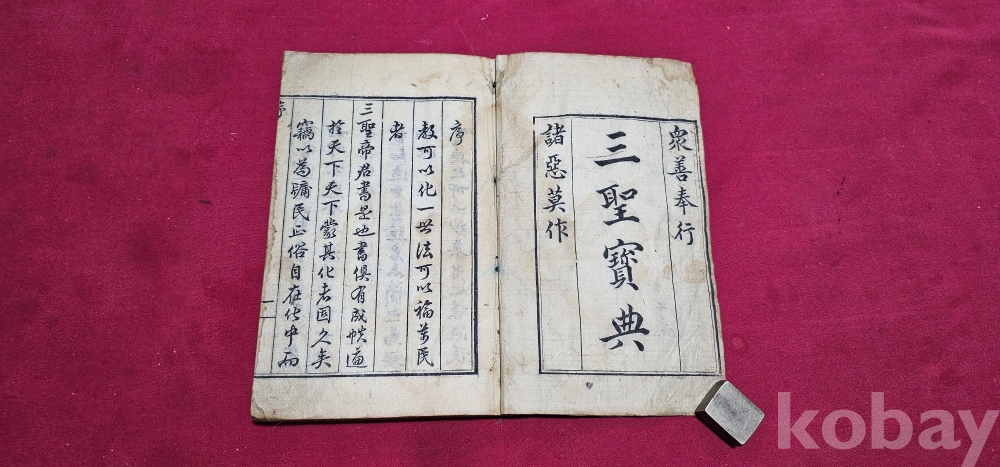 衆善奉行
三聖寶典
諸惡莫作
序
教可以化一世法可以福萬民
者
三聖帝君書是也書俱有成帙遍
於天下天下蒙其化者固久矣
竊以為牖民正俗自在化中而
序
一
kobay